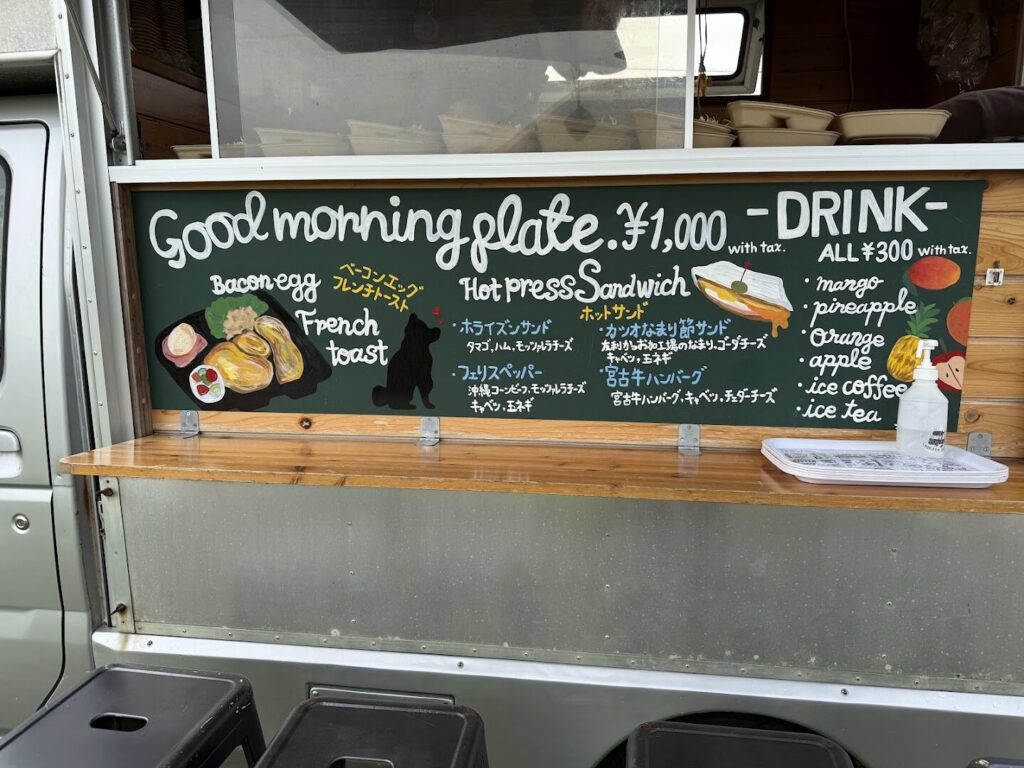 Good morning plate. ¥1,000 with tax.
Bacon egg
ベーコンエッグ
フレンチトースト
French
toast
Hot press Sandwich
ホットサンド
・ホライズンサンド
タマゴ、ハム、モッツァレラチーズ
・フェリスペッパー
沖縄コーンビーフ、モッツァレラチーズ
キャベツ、玉ネギ
・カツオなまり節サンド
友利かつお加工場のなまり、ゴーダチーズ
キャベツ、玉ネギ
・宮古牛ハンバーグ
宮古牛ハンバーグ、キャベツ、チェダーチーズ
-DRINK-
ALL ¥300 with tax.
・mango
・pineapple
・orange
・apple
・ice coffee
・ice tea